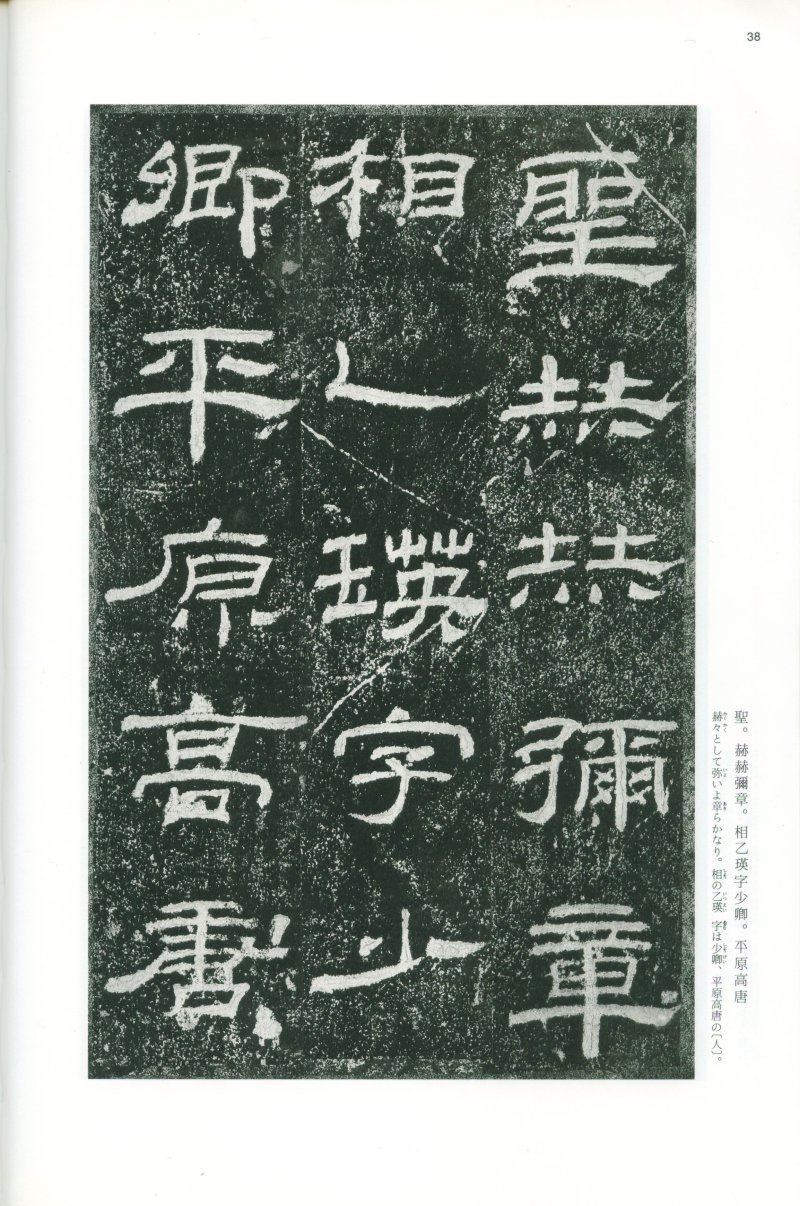 38
聖赫赫彌章
相乙瑛字少
卿平原高唐
聖。赫赫彌章。相乙瑛字少卿。平原高唐
赫々として弥いよ章らかなり。相の乙瑛 字は少卿、平原高唐の〔人〕。